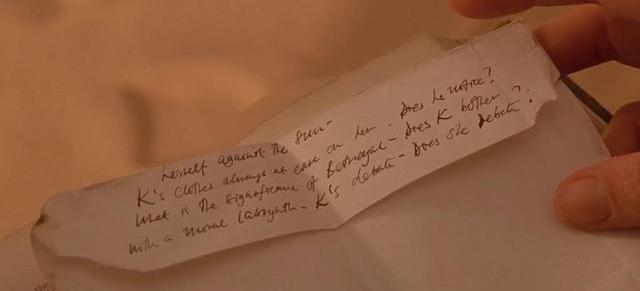 herself against the sun-
K's clothes always at ease on her. Does he notice?
What is the significance of Betrayal - Does K bother
with a moral labrynth - K's debate - Does she debate?